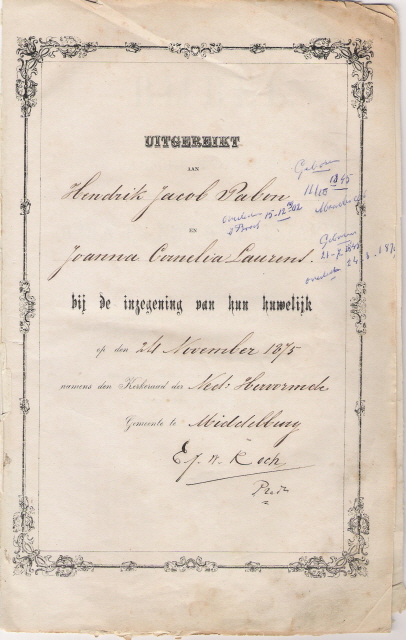 UITGEREIKT
AAN
Hendrik Jacob Pabon
Geboren
1845
overleden 15-12
EN
Joanna Cornelia Laurens.
Geboren
overleden
bij de inzegening van hun huwelijk
op den 24 November 1875
namens den Kerkeraad der Ned: Hervormde
Gemeente te Middelburg
Koch
Pred: